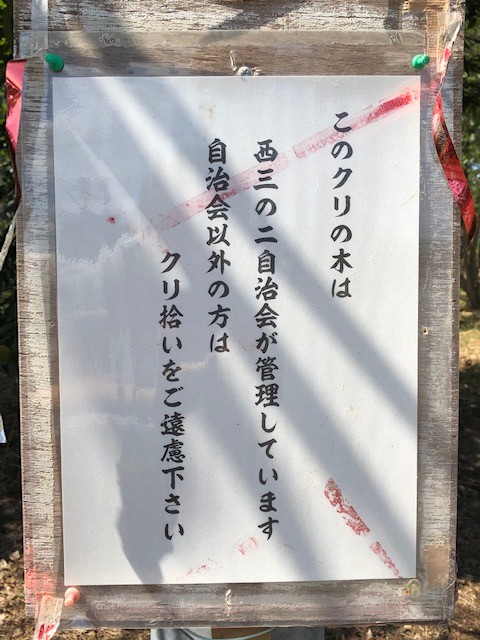 このクリの木は
西三の二自治会が管理しています
自治会以外の方は
クリ拾いをご遠慮下さい